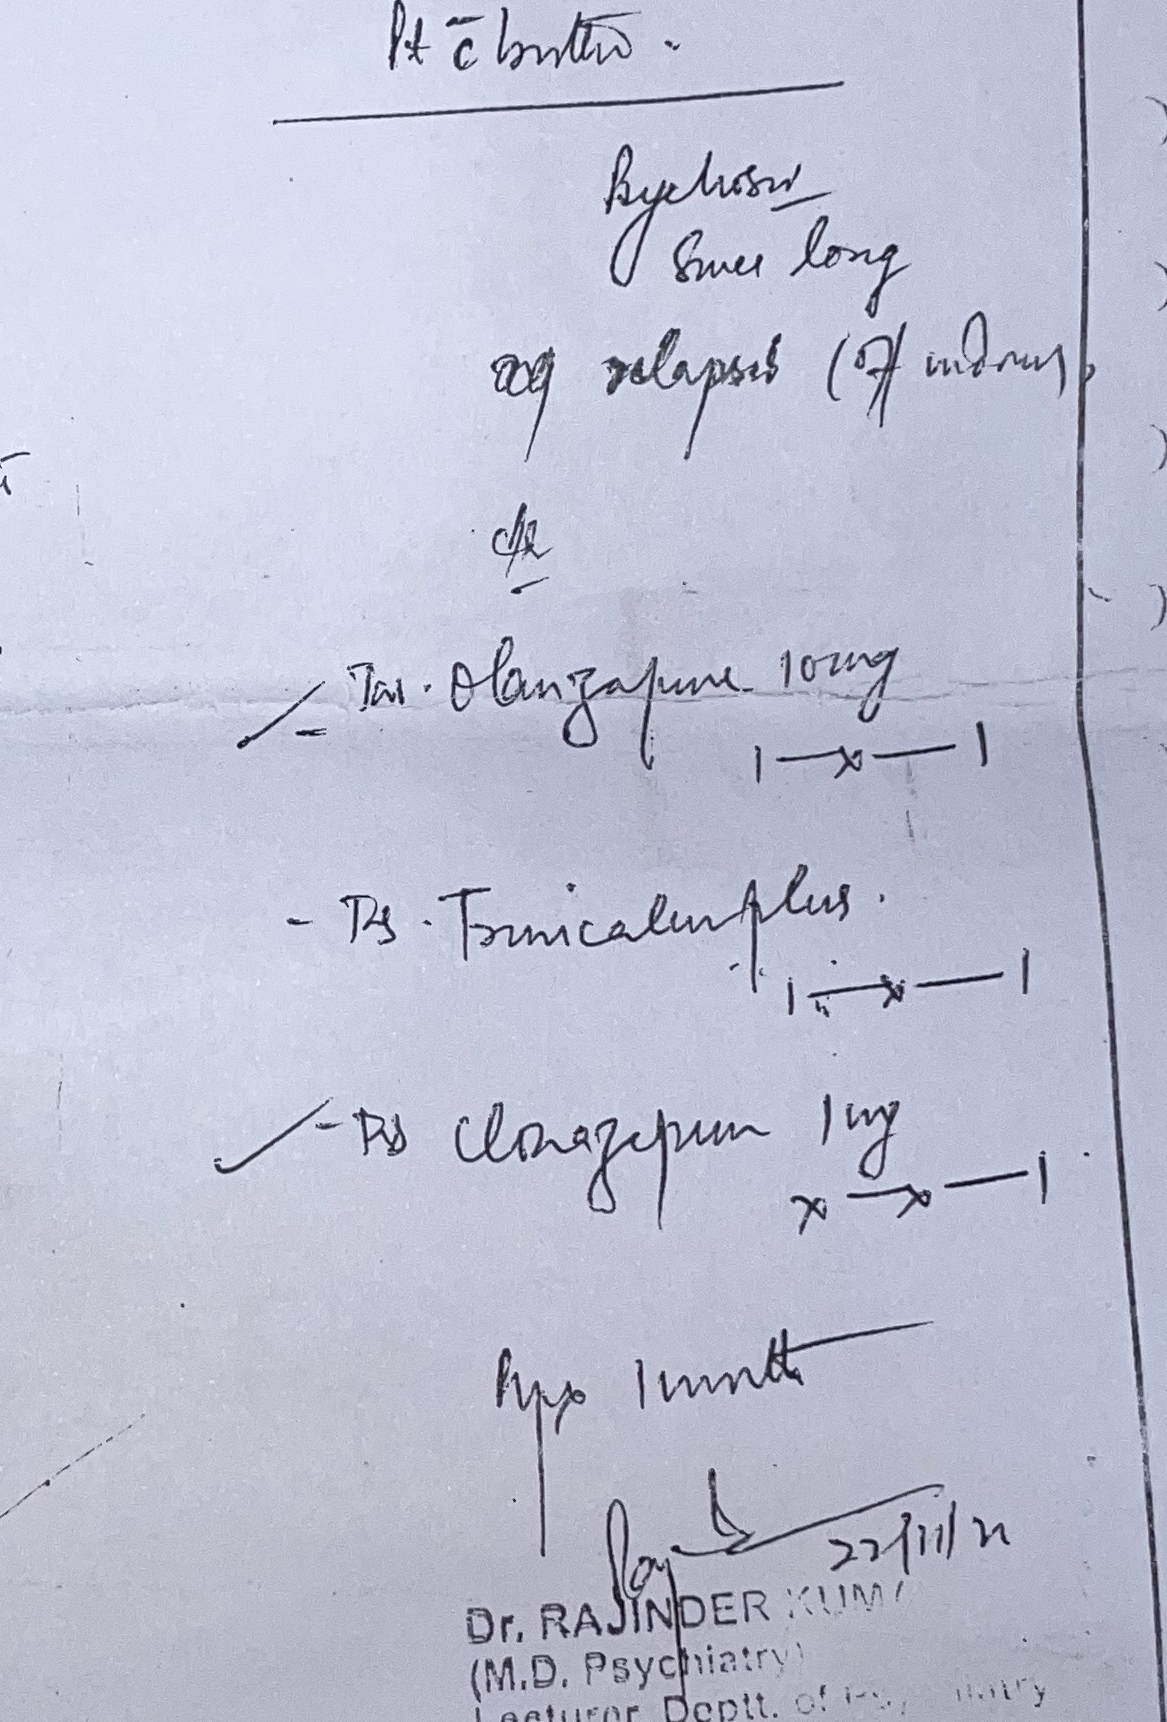 Pt c̄ brother.
Psychosis
Since long
relapses (off
Tab. Olanzapine 10mg
1—x—1
- Tab. Trinicalm plus.
1—x—1
- Tab Clonazepam 1mg
x—x—1
1 month
22/11/21
Dr. RAJINDER KUMA
(M.D. Psychiatry)
Lecturer Deptt. of Psychiatry